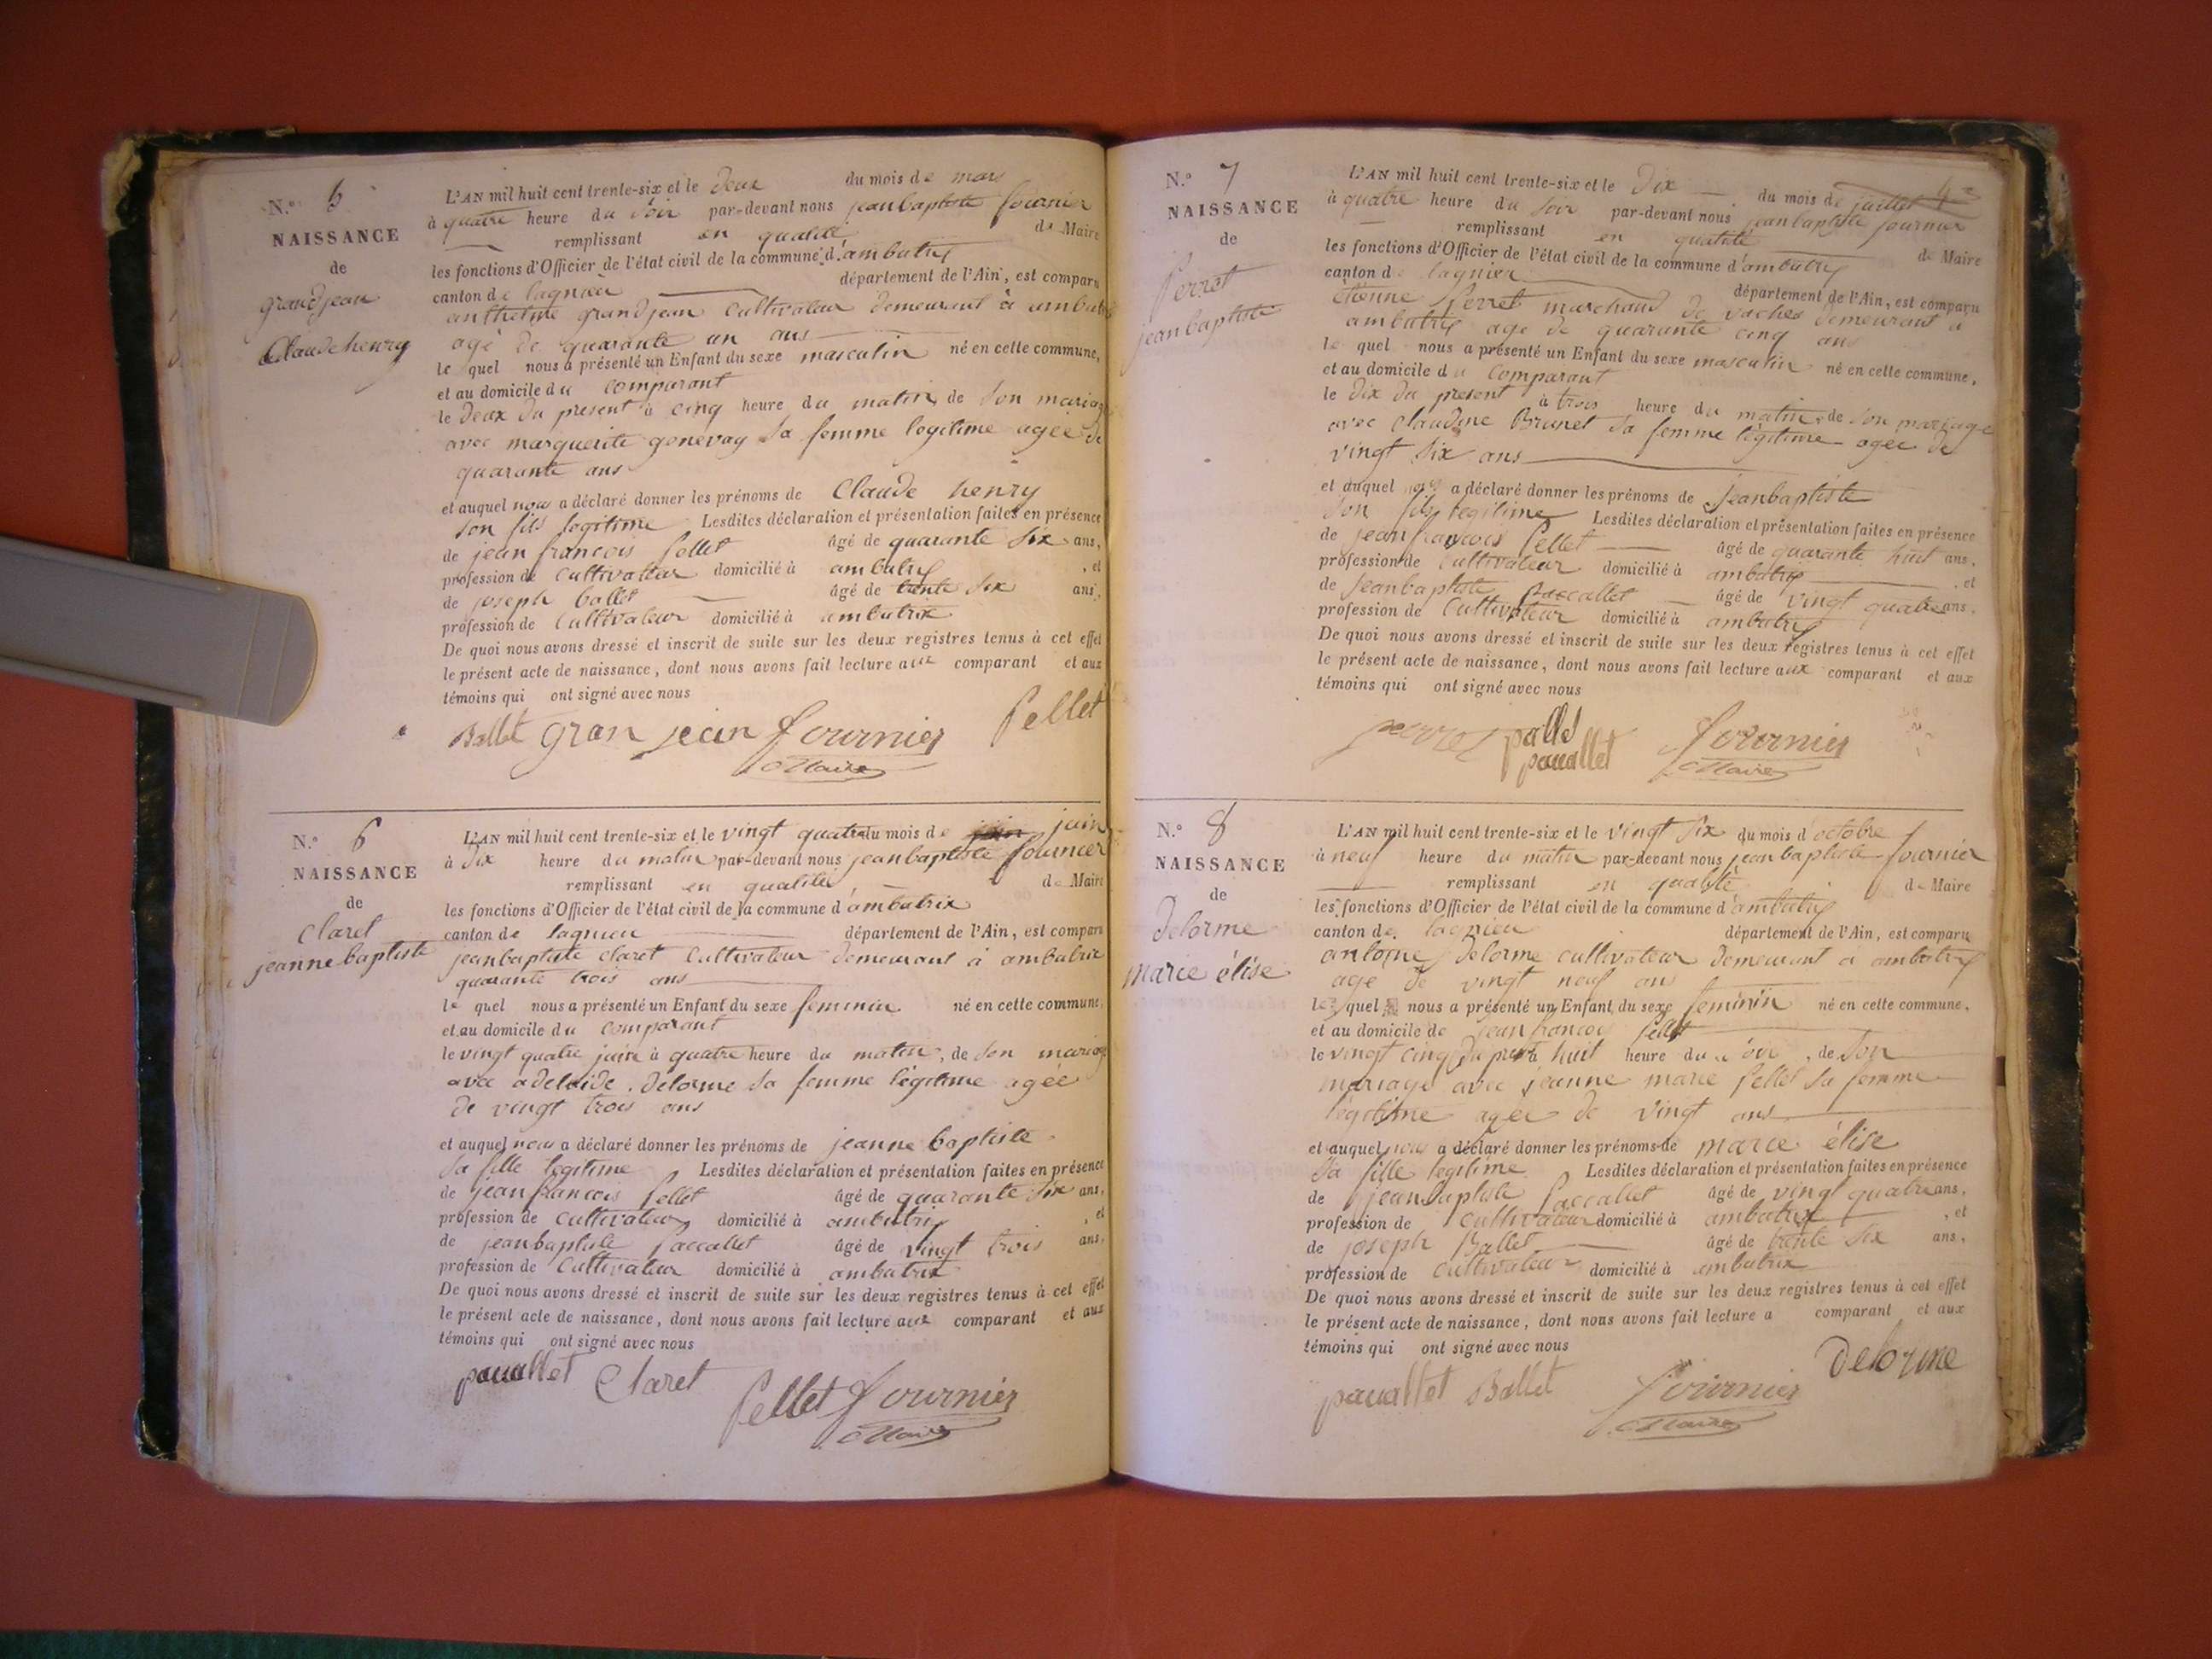 N.° 6
NAISSANCE
de
grandjean
Claude henry
L'AN mil huit cent trente-six et le deux du mois de mars
à quatre heure du soir par-devant nous jeanbaptiste fournier
remplissant en qualité de Maire
les fonctions d'Officier de l'état civil de la commune d'ambutrix
canton de lagnieu département de l'Ain, est comparu
anthelme grandjean Cultivateur demeurant à ambutrix
agé de quarante un ans
le quel nous a présenté un Enfant du sexe masculin né en cette commune,
et au domicile du comparant
le deux du present à cinq heure du matin, de son mariage
avec marguerite genevay sa femme legitime agée de
quarante ans
et auquel nous a déclaré donner les prénoms de Claude henry
son fils legitime Lesdites déclaration et présentation faites en présence
de jean francois pellet âgé de quarante six ans,
profession de Cultivateur domicilié à ambutrix , et
de joseph ballet âgé de trente six ans,
profession de Cultivateur domicilié à ambutrix
De quoi nous avons dressé et inscrit de suite sur les deux registres tenus à cet effet
le présent acte de naissance, dont nous avons fait lecture aux comparant et aux
témoins qui ont signé avec nous
Ballet gran jean fournier pellet
Maire
N.° 6
NAISSANCE
de
claret
jeanne baptiste
L'AN mil huit cent trente-six et le vingt quatre du mois de juin
à dix heure du matin par-devant nous jeanbaptiste fournier
remplissant en qualité de Maire
les fonctions d'Officier de l'état civil de la commune d'ambutrix
canton de lagnieu département de l'Ain, est comparu
jeanbaptiste claret Cultivateur demeurant à ambutrix
quarante trois ans
le quel nous a présenté un Enfant du sexe feminin né en cette commune,
et au domicile du comparant
le vingt quatre juin à quatre heure du matin, de son mariage
avec adelaide delorme sa femme légitime agée
de vingt trois ans
et auquel nous a déclaré donner les prénoms de jeanne baptiste
sa fille legitime Lesdites déclaration et présentation faites en présence
de jean francois pellet âgé de quarante six ans,
profession de cultivateur domicilié à ambutrix , et
de jeanbaptiste paccallet âgé de vingt trois ans,
profession de Cultivateur domicilié à ambutrix
De quoi nous avons dressé et inscrit de suite sur les deux registres tenus à cet effet
le présent acte de naissance, dont nous avons fait lecture aux comparant et aux
témoins qui ont signé avec nous
pacallet Claret
pellet fournier
Maire
N.° 7
NAISSANCE
de
perret
jeanbaptiste
L'AN mil huit cent trente-six et le dix du mois de juillet
à quatre heure du soir par-devant nous jeanbaptiste fournier
remplissant en qualité de Maire
les fonctions d'Officier de l'état civil de la commune d'ambutrix
canton de lagnieu département de l'Ain, est comparu
étienne perret marchand de vaches demeurant à
ambutrix agé de quarante cinq ans
le quel nous a présenté un Enfant du sexe masculin né en cette commune,
et au domicile du comparant
le dix du present à trois heure du matin, de son mariage
avec Claudine Brunet sa femme légitime agée de
vingt six ans
et auquel nous a déclaré donner les prénoms de jeanbaptiste
son fils legitime Lesdites déclaration et présentation faites en présence
de jean francois pellet âgé de quarante huit ans,
profession de Cultivateur domicilié à ambutrix , et
de jeanbaptiste paccallet âgé de vingt quatre ans,
profession de Cultivateur domicilié à ambutrix
De quoi nous avons dressé et inscrit de suite sur les deux registres tenus à cet effet
le présent acte de naissance, dont nous avons fait lecture aux comparant et aux
témoins qui ont signé avec nous
fournier
pacallet Maire
N.° 8
NAISSANCE
de
delorme
marie élise
L'AN mil huit cent trente-six et le vingt six du mois d'octobre
à neuf heure du matin par-devant nous jean baptiste fournier
remplissant en qualité de Maire
les fonctions d'Officier de l'état civil de la commune d'ambutrix
canton de lagnieu département de l'Ain, est comparu
antoine delorme cultivateur demeurant à ambutrix
age de vingt neuf ans
le quel nous a présenté un Enfant du sexe feminin né en cette commune,
et au domicile de jean francois pellet
le vingt cinq du prest à huit heure du soir, de son
mariage avec jeanne marie pellet sa femme
légitime agée de vingt ans
et auquel nous a déclaré donner les prénoms de marie élise
sa fille legitime Lesdites déclaration et présentation faites en présence
de jeanbaptiste paccallet âgé de vingt quatre ans,
profession de cultivateur domicilié à ambutrix , et
de joseph Ballet âgé de trente six ans,
profession de Cultivateur domicilié à ambutrix
De quoi nous avons dressé et inscrit de suite sur les deux registres tenus à cet effet
le présent acte de naissance, dont nous avons fait lecture a comparant et aux
témoins qui ont signé avec nous
Delorme
pacallet Ballet fournier
Maire